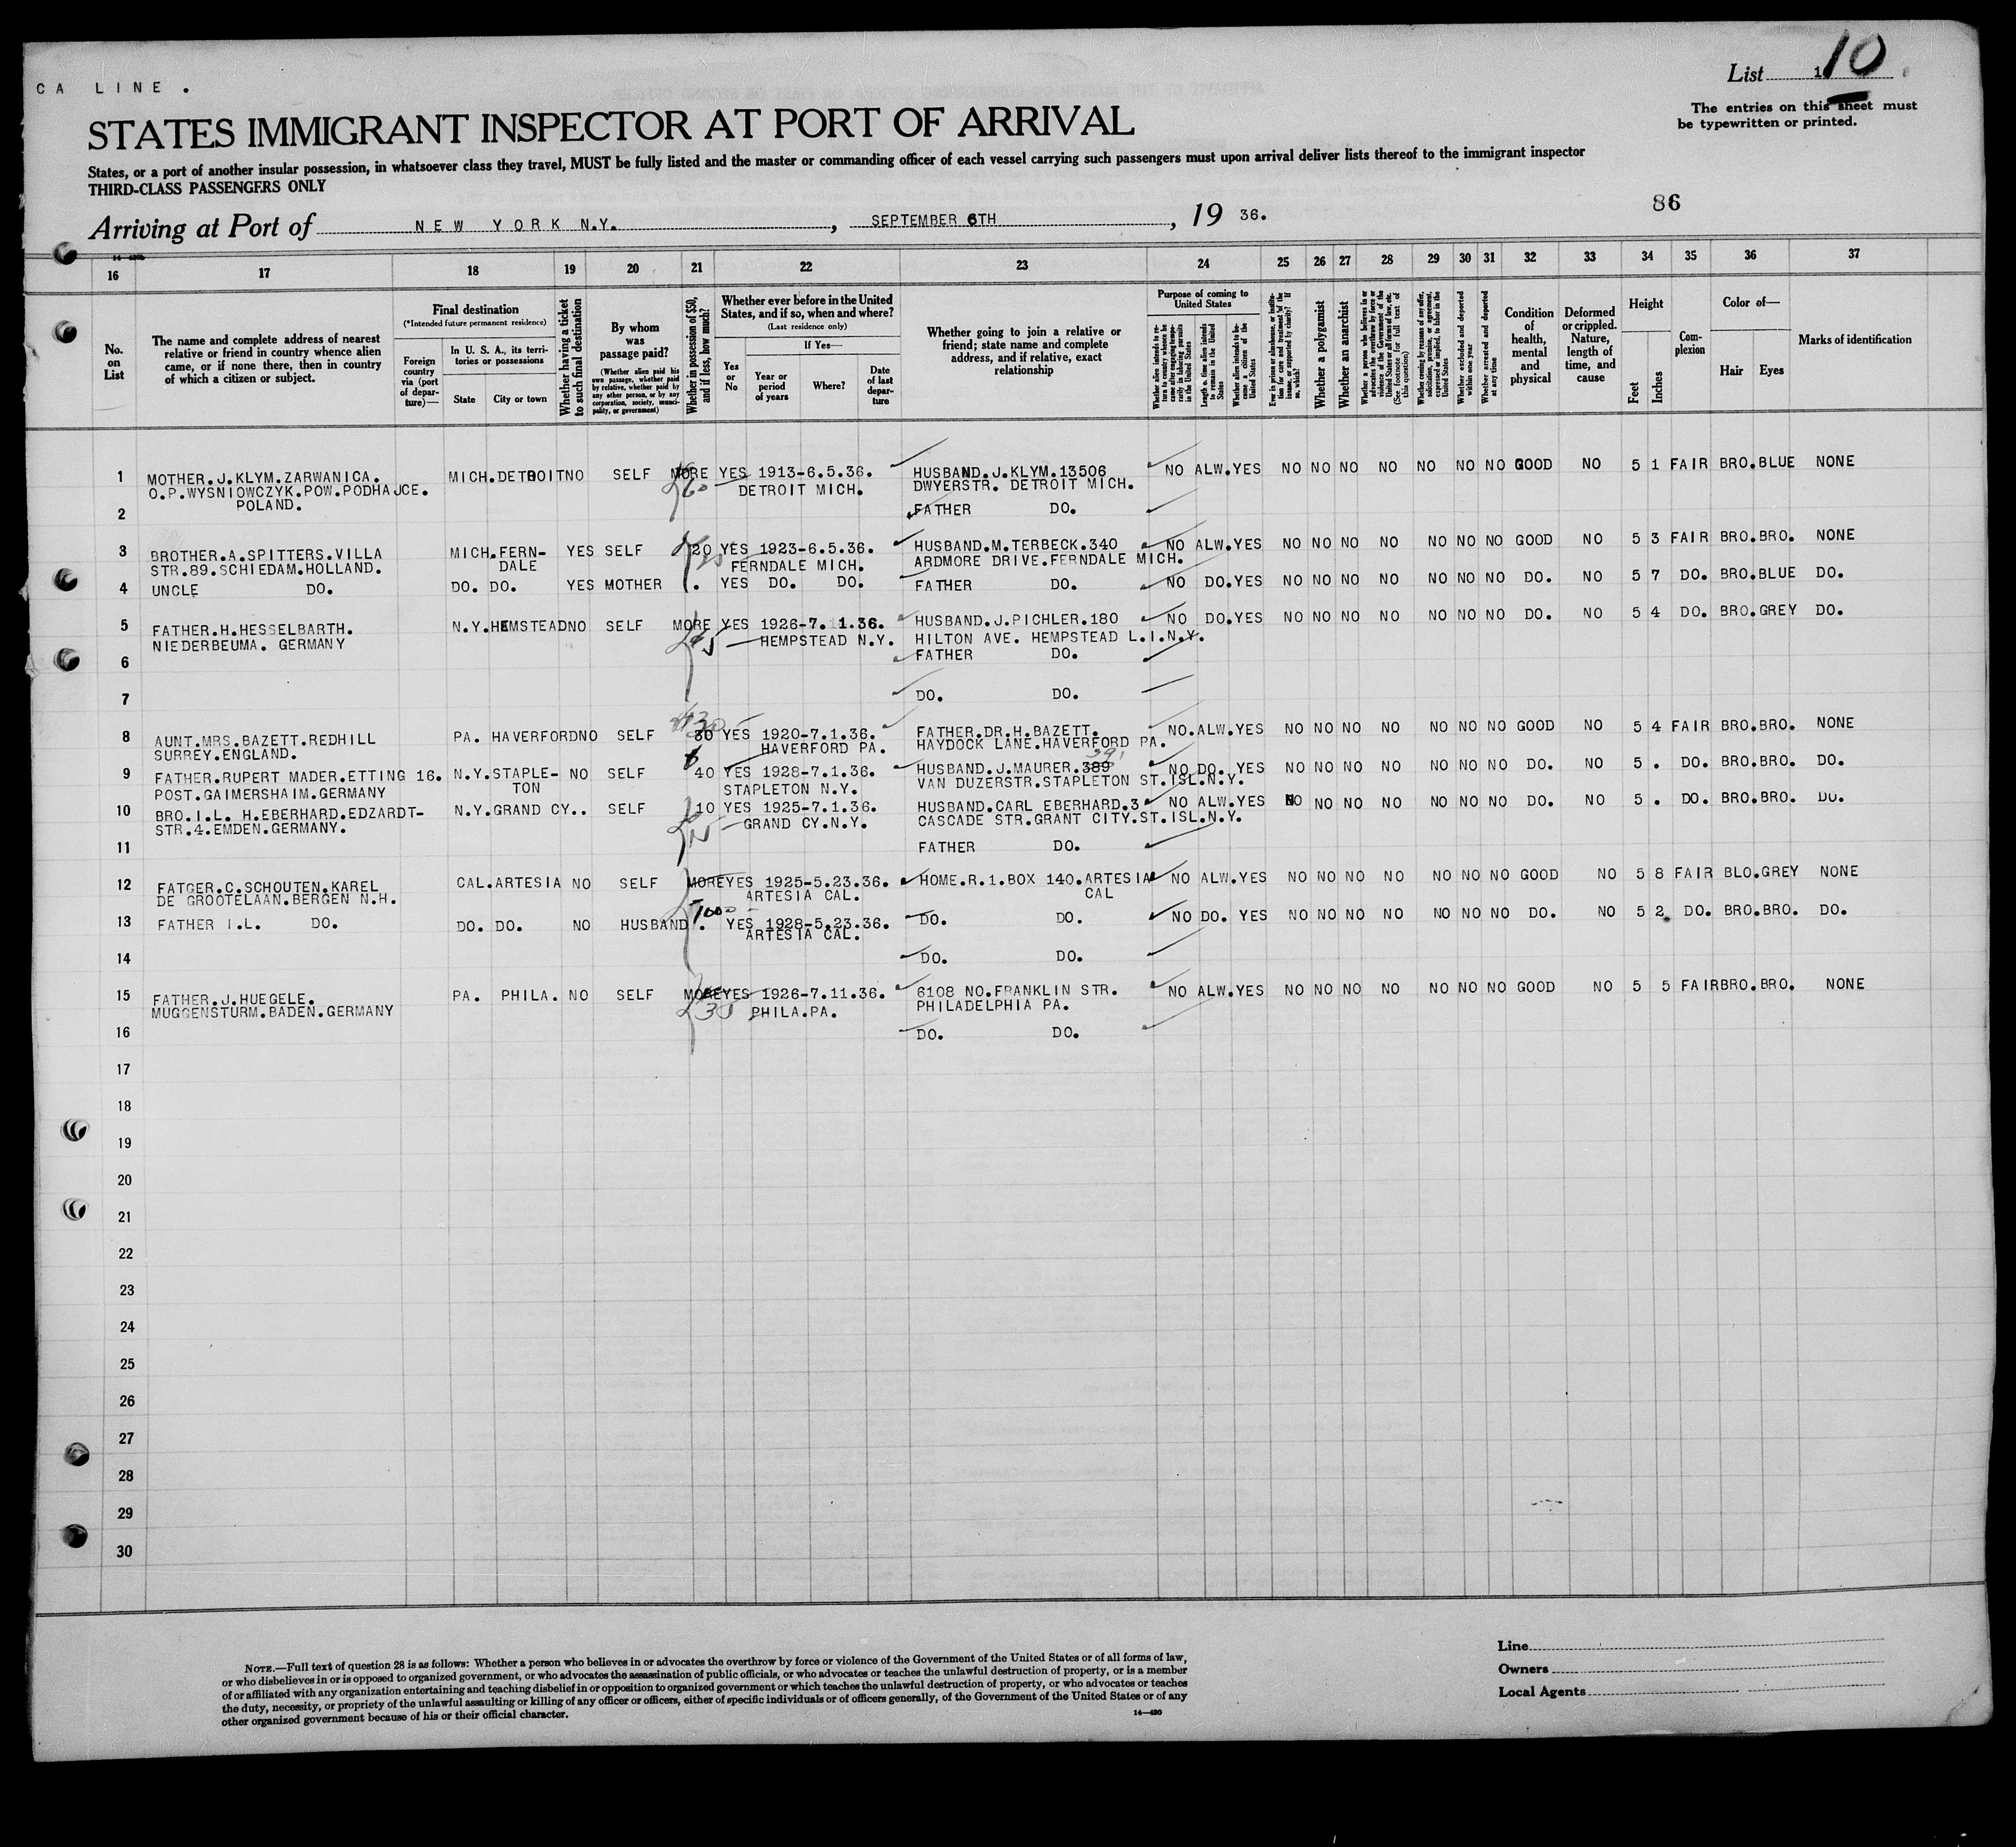 CA LINE.
List 10
The entries on this sheet must
be typewritten or printed.
STATES IMMIGRANT INSPECTOR AT PORT OF ARRIVAL
States, or a port of another insular possession, in whatsoever class they travel, MUST be fully listed and the master or commanding officer of each vessel carrying such passengers must upon arrival deliver lists thereof to the immigrant inspector
THIRD-CLASS PASSENGERS ONLY
86
Arriving at Port of NEW YORK N.Y., SEPTEMBER 6TH, 19 36.
16 17 18 19 20 21 22 23 24 25 26 27 28 29 30 31 32 33 34 35 36 37
No. on List
The name and complete address of nearest relative or friend in country whence alien came, or if none there, then in country of which a citizen or subject.
Final destination
(*Intended future permanent residence)
Foreign country via (port of departure)—
In U. S. A., its territories or possessions
State City or town
Whether having a ticket to such final destination
By whom was passage paid?
(Whether alien paid his own passage, whether paid by relative, whether paid by any other person, or by any corporation, society, municipality, or government)
Whether in possession of $50, and if less, how much?
Whether ever before in the United States, and if so, when and where?
(Last residence only)
Yes or No
If Yes—
Year or period of years
Where?
Date of last departure
Whether going to join a relative or friend; state name and complete address, and if relative, exact relationship
Purpose of coming to United States
Length of time alien intends to remain in the United States
Whether alien intends to become a citizen of the United States
Whether a polygamist
Whether an anarchist
Whether excluded and deported within one year
Whether arrested and deported at any time
Condition of health, mental and physical
Deformed or crippled. Nature, length of time, and cause
Height
Feet Inches
Complexion
Color of—
Hair Eyes
Marks of identification
1 MOTHER.J.KLYM.ZARWANICA. MICH.DETROIT NO SELF MORE YES 1913-6.5.36. HUSBAND.J.KLYM.13506 NO ALW.YES NO NO NO NO NO NO NO GOOD NO 5 1 FAIR BRO.BLUE NONE
O.P.WYSNIOWCZYK.POW.PODHAJCE. 60 DETROIT MICH. DWYERSTR. DETROIT MICH.
POLAND.
2 FATHER DO.
3 BROTHER.A.SPITTERS.VILLA MICH.FERN- YES SELF 20 YES 1923-6.5.36. HUSBAND.M.TERBECK.340 NO ALW.YES NO NO NO NO NO NO NO GOOD NO 5 3 FAIR BRO.BRO. NONE
STR.89.SCHIEDAM.HOLLAND. DALE FERNDALE MICH. ARDMORE DRIVE.FERNDALE MICH.
4 UNCLE DO. DO. DO. YES MOTHER . YES DO. DO. FATHER DO. NO DO.YES NO NO NO NO NO NO NO DO. NO 5 7 DO. BRO.BLUE DO.
5 FATHER.H.HESSELBARTH. N.Y.HEMSTEAD NO SELF MORE YES 1926-7.1.36. HUSBAND.J.PICHLER.180 NO DO.YES NO NO NO NO NO NO NO DO. NO 5 4 DO. BRO.GREY DO.
NIEDERBEUMA. GERMANY HEMPSTEAD N.Y. HILTON AVE. HEMPSTEAD L.I.N.Y.
6 FATHER DO.
7 DO. DO.
8 AUNT.MRS.BAZETT.REDHILL PA. HAVERFORD NO SELF 30 YES 1920-7.1.36. FATHER.DR.H.BAZETT. NO.ALW.YES NO NO NO NO NO NO NO GOOD NO 5 4 FAIR BRO.BRO. NONE
SURREY.ENGLAND. HAVERFORD PA. HAYDOCK LANE.HAVERFORD PA.
9 FATHER.RUPERT MADER.ETTING 16. N.Y.STAPLE- NO SELF 40 YES 1928-7.1.36. HUSBAND.J.MAURER.389 NO DO. YES NO NO NO NO NO NO NO DO. NO 5 . DO. BRO.BRO. DO.
POST.GAIMERSHAIM.GERMANY TON STAPLETON N.Y. VAN DUZERSTR.STAPLETON ST.ISL.N.Y.
10 BRO.I.L. H.EBERHARD.EDZARDT- N.Y.GRAND CY.. SELF 10 YES 1925-7.1.36. HUSBAND.CARL EBERHARD.3 NO ALW.YES NO NO NO NO NO NO NO DO. NO 5 . DO. BRO.BRO. DO.
STR.4.EMDEN.GERMANY. GRAND CY.N.Y. CASCADE STR.GRANT CITY.ST.ISL.N.Y.
11 FATHER DO.
12 FATGER.C.SCHOUTEN.KAREL CAL.ARTESIA NO SELF MORE YES 1925-5.23.36. HOME.R.1.BOX 140.ARTESIA NO ALW.YES NO NO NO NO NO NO NO GOOD NO 5 8 FAIR BLO.GREY NONE
DE GROOTELAAN.BERGEN N.H. ARTESIA CAL. CAL
13 FATHER I.L. DO. DO. DO. NO HUSBAND . 1000 YES 1928-5.23.36. DO. DO. NO DO. YES NO NO NO NO NO NO NO DO. NO 5 2 DO. BRO.BRO. DO.
ARTESIA CAL.
14 DO. DO.
15 FATHER.J.HUEGELE. PA. PHILA. NO SELF MORE YES 1926-7.11.36. 6108 NO.FRANKLIN STR. NO ALW.YES NO NO NO NO NO NO NO GOOD NO 5 5 FAIR BRO.BRO. NONE
MUGGENSTURM.BADEN.GERMANY 35 PHILA.PA. PHILADELPHIA PA.
16 DO. DO.
17
18
19
20
21
22
23
24
25
26
27
28
29
30
NOTE.—Full text of question 28 is as follows: Whether a person who believes in or advocates the overthrow by force or violence of the Government of the United States or of all forms of law,
or who disbelieves in or is opposed to organized government, or who advocates the assassination of public officials, or who advocates or teaches the unlawful destruction of property, or is a member
of or affiliated with any organization entertaining and teaching disbelief in or opposition to organized government or which teaches the unlawful destruction of property, or who advocates or teaches
the duty, necessity, or propriety of the unlawful assaulting or killing of any officer or officers, either of specific individuals or of officers generally, of the Government of the United States or of any
other organized government because of his or their official character.
14—430
Line
Owners
Local Agents